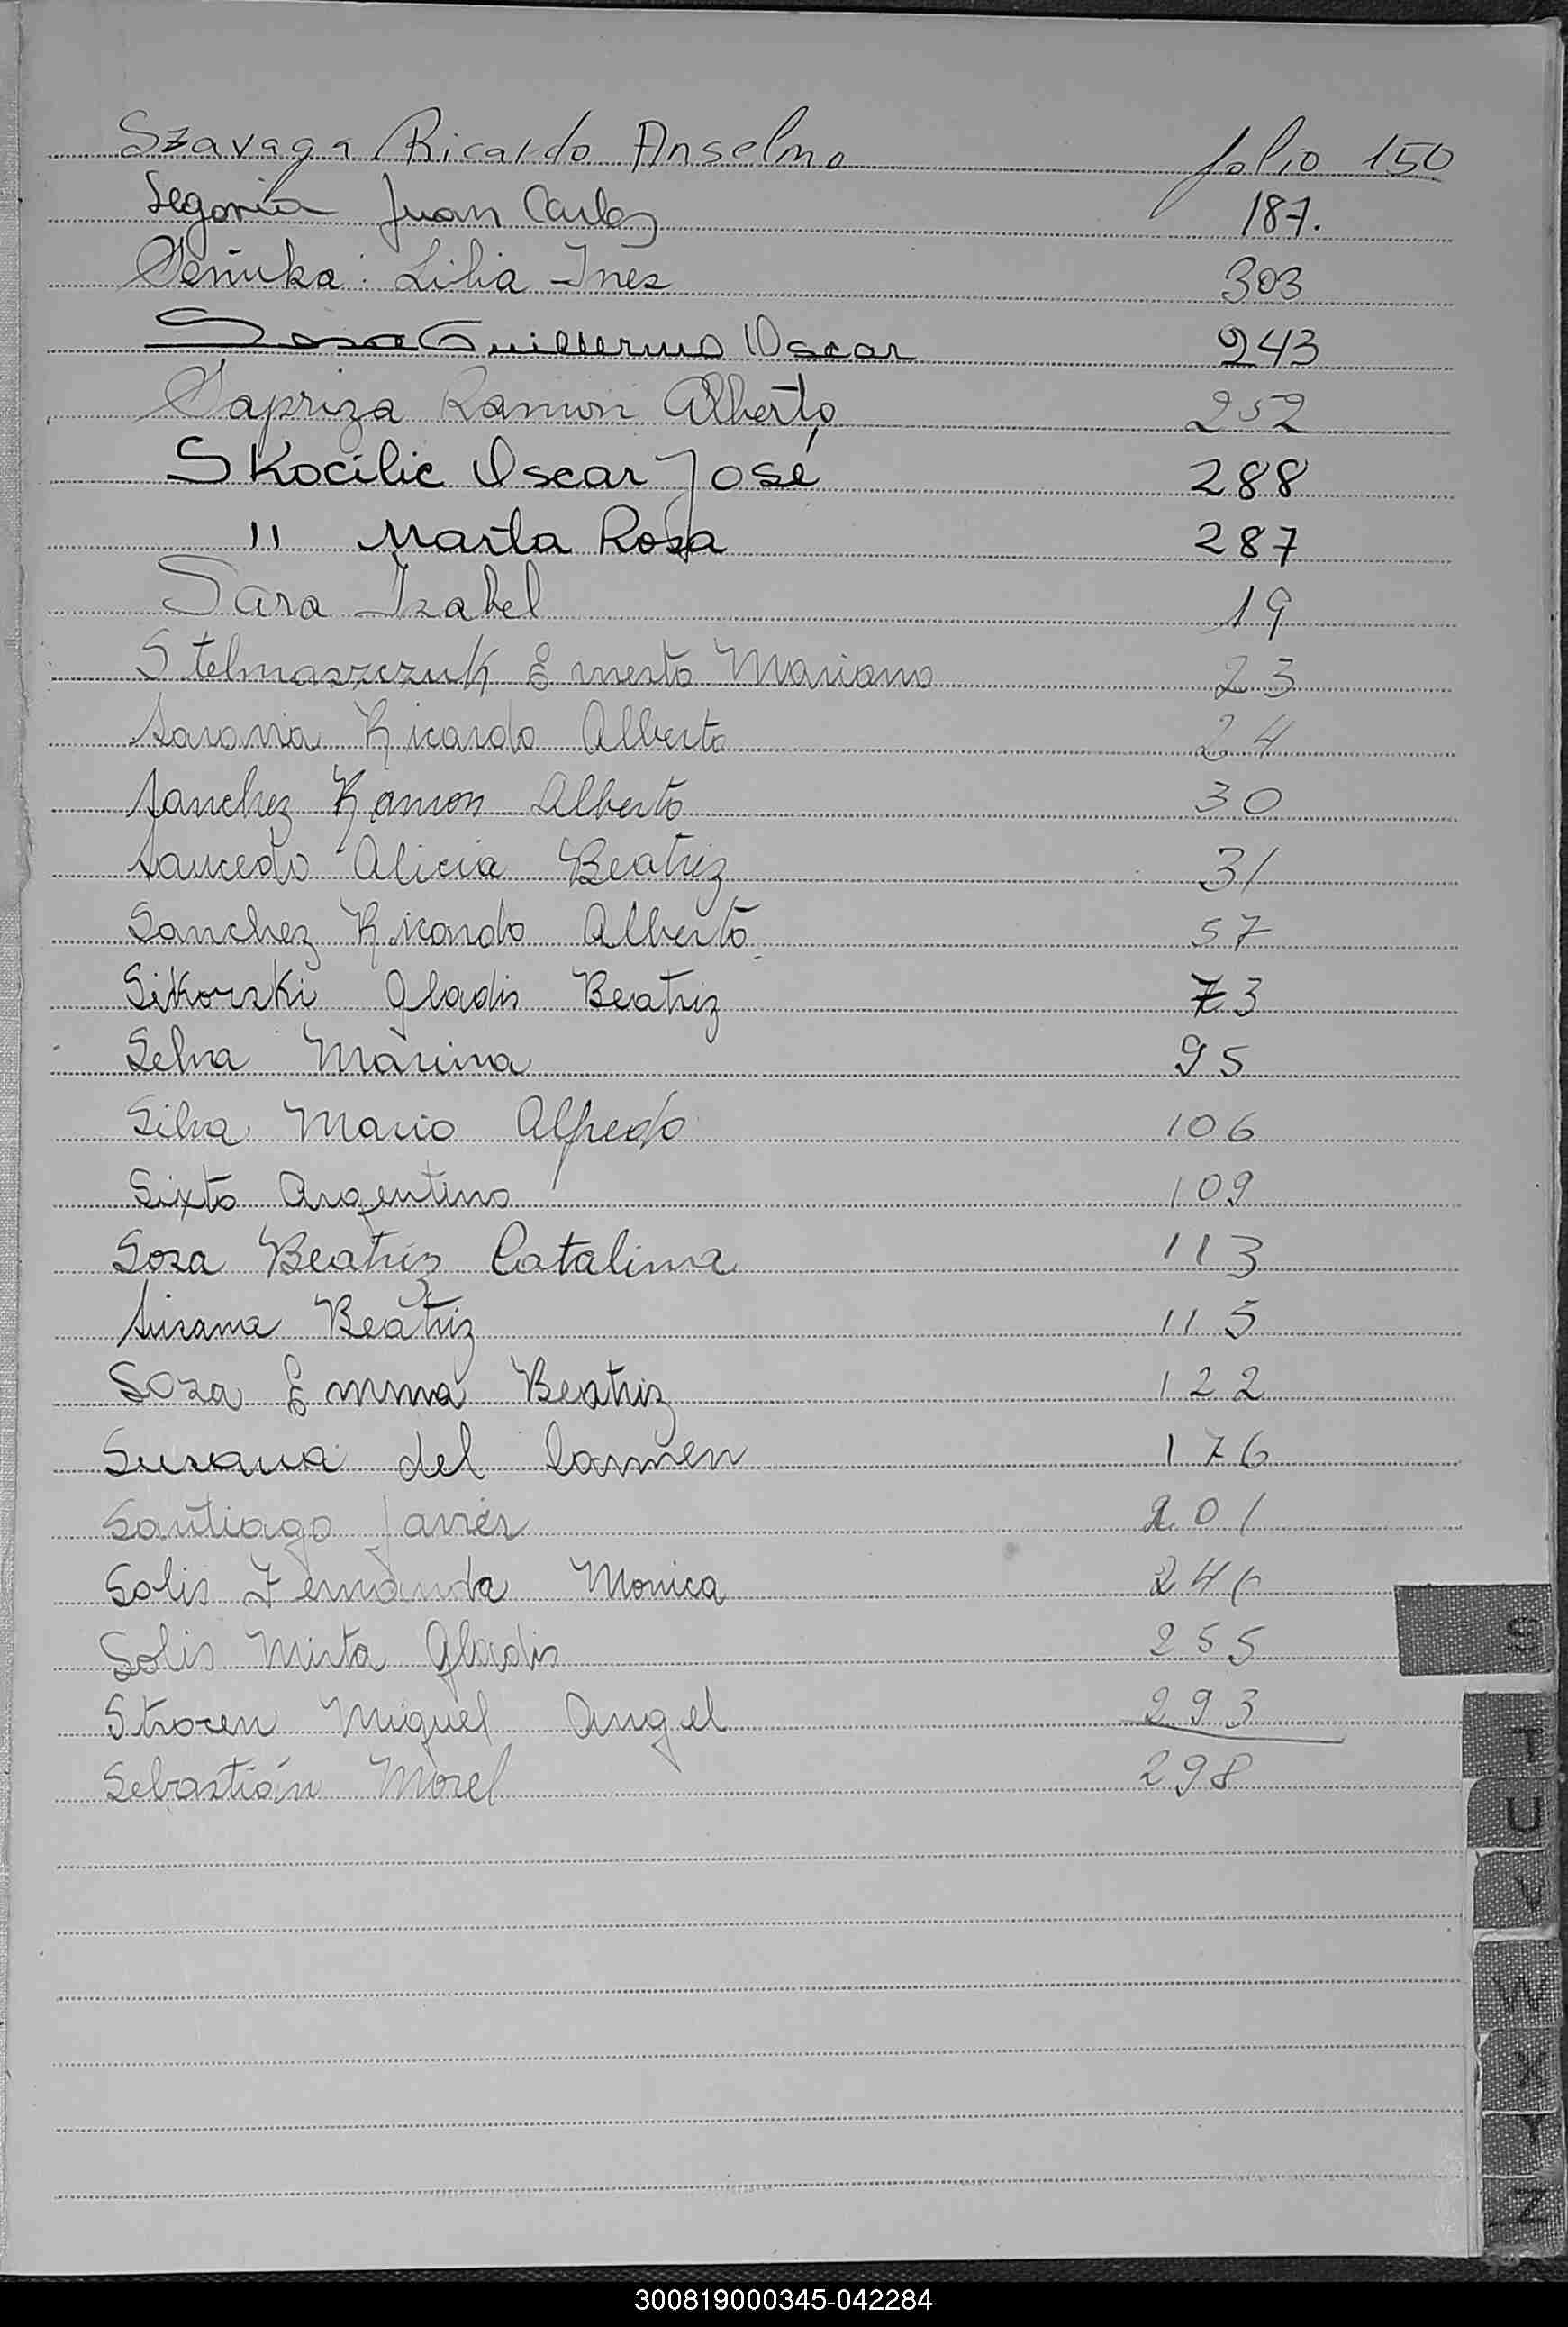 Szavaga Ricardo Anselmo folio 150
Segovia Juan Carlos 187.
Lilia Ines 303
Sosa Guillermo Oscar 243
Sapriza Ramon Alberto 252
Skocilic Oscar José 288
" Marta Rosa 287
Sara Izabel 19
Stelmaszczuk Ernesto Mariano 23
Saravia Ricardo Alberto 24
Sanchez Ramon Alberto 30
Saucedo Alicia Beatriz 31
Sanchez Ricardo Alberto 57
Sikorski Gladis Beatriz 73
Selva Marina 95
Silva Mario Alfredo 106
Sixto Argentino 109
Sosa Beatriz Catalina 113
Susana Beatriz 115
Soza Emma Beatriz 122
Susana del Carmen 176
Santiago Javier 201
Solis Fernanda Monica
Solis Mirta Gladis 255
Strocen Miguel Angel 293
Sebastián Morel 298
S
T
U
V
W
X
Y
Z
300819000345-042284